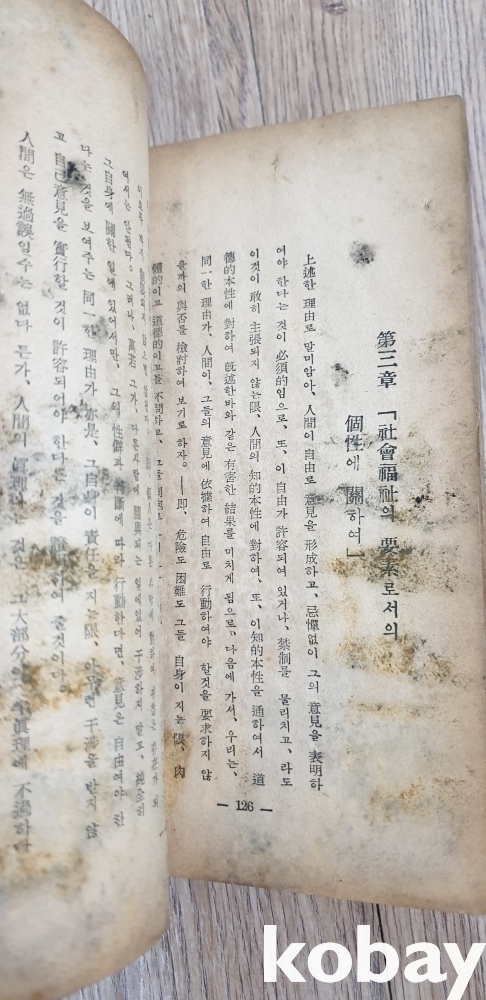 第三章 「社會福祉의 要素로서의
個性에 關하여」
上述한 理由로 말미암아、人間이 自由로 意見을 形成하고、忌憚없이 그의 意見을 表明하
여야 한다는 것이 必須的임으로、또、이 自由가 許容되여 있거나、禁制를 물리치고、라도
이것이 敢히 主張되지 않는限、人間의 知的本性에 對하여、또、이知的本性을 通하여서 道
德的本性에 對하여 旣述한바와 같은 有害한 結果를 미치게 됨으로、다음에 가서、우리는、
同一한 理由가、人間이、그들의 意見에 依據하여 自由로 行動하여야 할것을 要求하지 않
을까의 與否를 檢討하여 보기로 하자。——即、危險도 困難도 그들 自身이 지는 限、肉
體的이고 道德的이고를 不問하고、그들
— 126 —
여서는 안된다。그러나、萬若 그가、다른사람에 關與되는 일에있어 干涉하지 말고、
그自身에 關한 일에 있어서만、그의 性癖과 判斷에 따라 行動한다면、意見은 自由여야 한
다는 것을 보여주는 同一한 理由가 亦是、그自身이 責任을 지는限、干涉을 받지 않
고 自己意見을 實行할 것이 許容되어야 한다는 것을 하여 줄것이다。
人間은 無過誤일수는 없다 든가、人間의 眞理 大部分 半眞理에 不過하다
kobay